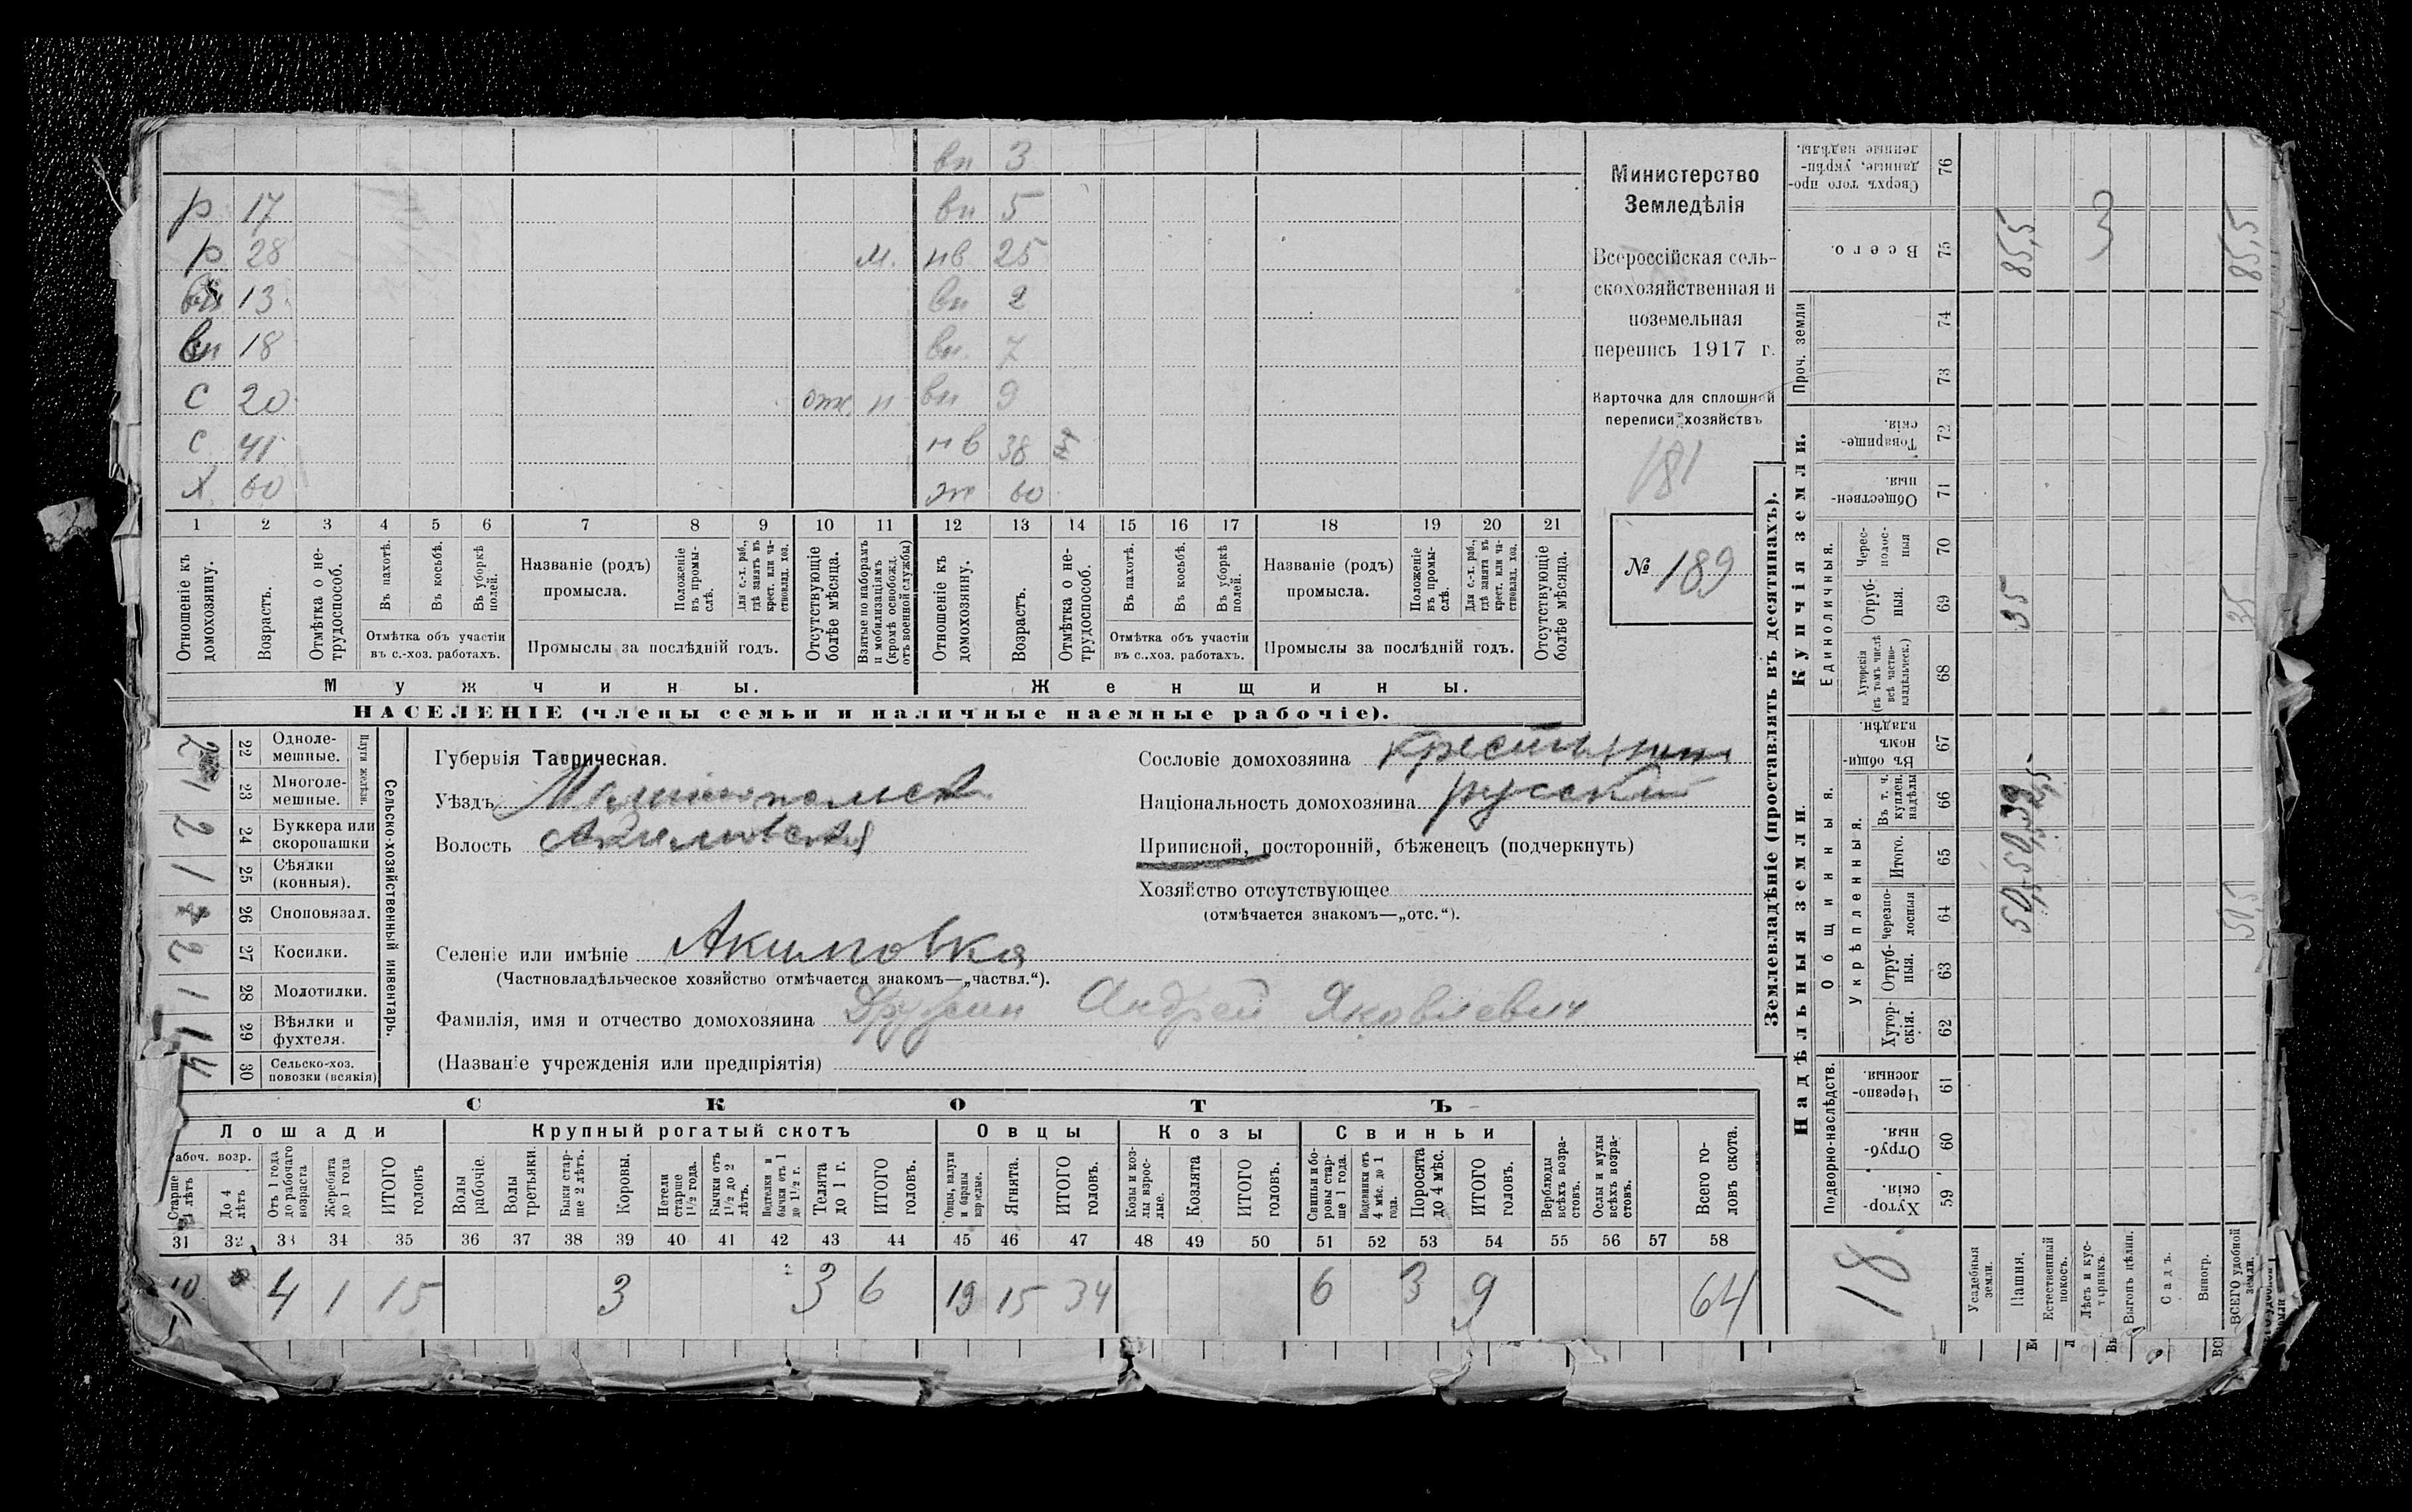 вн 3
р 17 вн 5
р 28 м. нв 25
13 вн 2
вн 18 вн. 7
с 20 отс. н вн 9
с 41 нв 38
х 60 ж 60
1 2 3 4 5 6 7 8 9 10 11 12 13 14 15 16 17 18 19 20 21
Отношеніе къ домохозяину.
Возрастъ.
Отмѣтка о не-трудоспособ.
Въ пахотѣ.
Въ косьбѣ.
Въ уборкѣ полей.
Отмѣтка объ участіи
въ с.-хоз. работахъ.
Названіе (родъ)
промысла.
Положеніе въ промы-слѣ.
Для с.-х. раб., гдѣ занятъ въ крест. или ча-стновлад. хоз.
Промыслы за послѣдній годъ.
Отсутствующіе болѣе мѣсяца.
Взятые по наборамъ и мобилизаціямъ (кромѣ освобожд. отъ военной службы)
Отношеніе къ домохозяину.
Возрастъ.
Отмѣтка о не-трудоспособ.
Въ пахотѣ.
Въ косьбѣ.
Въ уборкѣ полей.
Отмѣтка объ участіи
въ с..хоз. работахъ.
Названіе (родъ)
промысла.
Положеніе въ промы-слѣ.
Для с.-х. раб., гдѣ занята въ крест. или ча-стновлад. хоз.
Промыслы за послѣдній годъ.
Отсутствующіе болѣе мѣсяца.
Мужчины. Женщины.
НАСЕЛЕНІЕ (члены семьи и наличные наемные рабочіе).
Министерство
Земледѣлія
Всероссійская сель-
скохозяйственная и
поземельная
перепись 1917 г.
Карточка для сплошной
переписи хозяйствъ
181
№ 189
22 Одноле-мешные.
23 Многоле-мешные.
Плуги желѣзн.
2 24 Буккера или скоропашки
1 25 Сѣялки (конныя).
26 Сноповязал.
2 27 Косилки.
1 28 Молотилки.
1 29 Вѣялки и фухтеля.
4 30 Сельско-хоз. повозки (всякія)
Сельско-хозяйственный инвентарь.
Губернія Таврическая.
Уѣздъ Мелитопольск
Волость Акимовская
Селеніе или имѣніе Акимовка
(Частновладѣльческое хозяйство отмѣчается знакомъ—„частвл.“).
Фамилія, имя и отчество домохозяина Андрей Яковлевич
(Названіе учрежденія или предпріятія)
Сословіе домохозяина крестьянин
Національность домохозяина русский
Приписной, посторонній, бѣженецъ (подчеркнуть)
Хозяйство отсутствующее
(отмѣчается знакомъ—„отс.“).
СКОТЪ
Лошади Крупный рогатый скотъ Овцы Козы Свиньи
Рабоч. возр.
Старше 4 лѣтъ
До 4 лѣтъ
Отъ 1 года до рабочаго возраста
Жеребята до 1 года
ИТОГО головъ
Волы рабочіе.
Волы третьяки.
Быки стар-ше 2 лѣтъ.
Коровы.
Нетели старше 1½ года.
Бычки отъ 1½ до 2 лѣтъ.
Подтелки и бычки отъ 1 до 1½ г.
Телята до 1 г.
ИТОГО головъ.
Овцы, валухи и бараны взрослые.
Ягнята.
ИТОГО головъ.
Козы и коз-лы взрос-лые.
Козлята
ИТОГО головъ.
Свиньи и бо-ровы стар-ше 1 года.
Подсвинки отъ 4 мѣс. до 1 года.
Поросята до 4 мѣс.
ИТОГО головъ.
Верблюды всѣхъ возра-стовъ.
Ослы и мулы всѣхъ возра-стовъ.
Всего го-ловъ скота.
31 32 33 34 35 36 37 38 39 40 41 42 43 44 45 46 47 48 49 50 51 52 53 54 55 56 57 58
10 4 1 15 3 3 6 19 15 34 6 3 9 64
Землевладѣніе (проставлять въ десятинахъ).
Надѣльныя земли. Купчія земли. Проч. земли
Подворно-наслѣдств.
Общинныя.
Укрѣпленныя.
Единоличныя.
Хутор-скія. 59
Отруб-ныя. 60
Черезпо-лосныя. 61
Хутор-скія. 62
Отруб-ныя. 63
Черезпо-лосныя 64
Итого. 65
Въ т. ч. куплен. надѣлы 66
Въ общи-номъ владѣн. 67
Хуторскія (въ томъ числѣ всѣ частно-владѣльческ.) 68
Отруб-ныя. 69
Черес-полос-ныя 70
Обществен-ныя. 71
Товарище-скія. 72
73
74
Всего. 75
Сверхъ того про-данные, укрѣп-ленные надѣлы. 76
18
Усадебныя земли.
Пашня. 50,5 50,5 39 35 85,5
Естественный покосъ.
Лѣсъ и кус-тарникъ. 3
Выгонъ цѣлин.
Садъ.
Виногр.
ВСЕГО удобной земли. 50,5 35 85,5